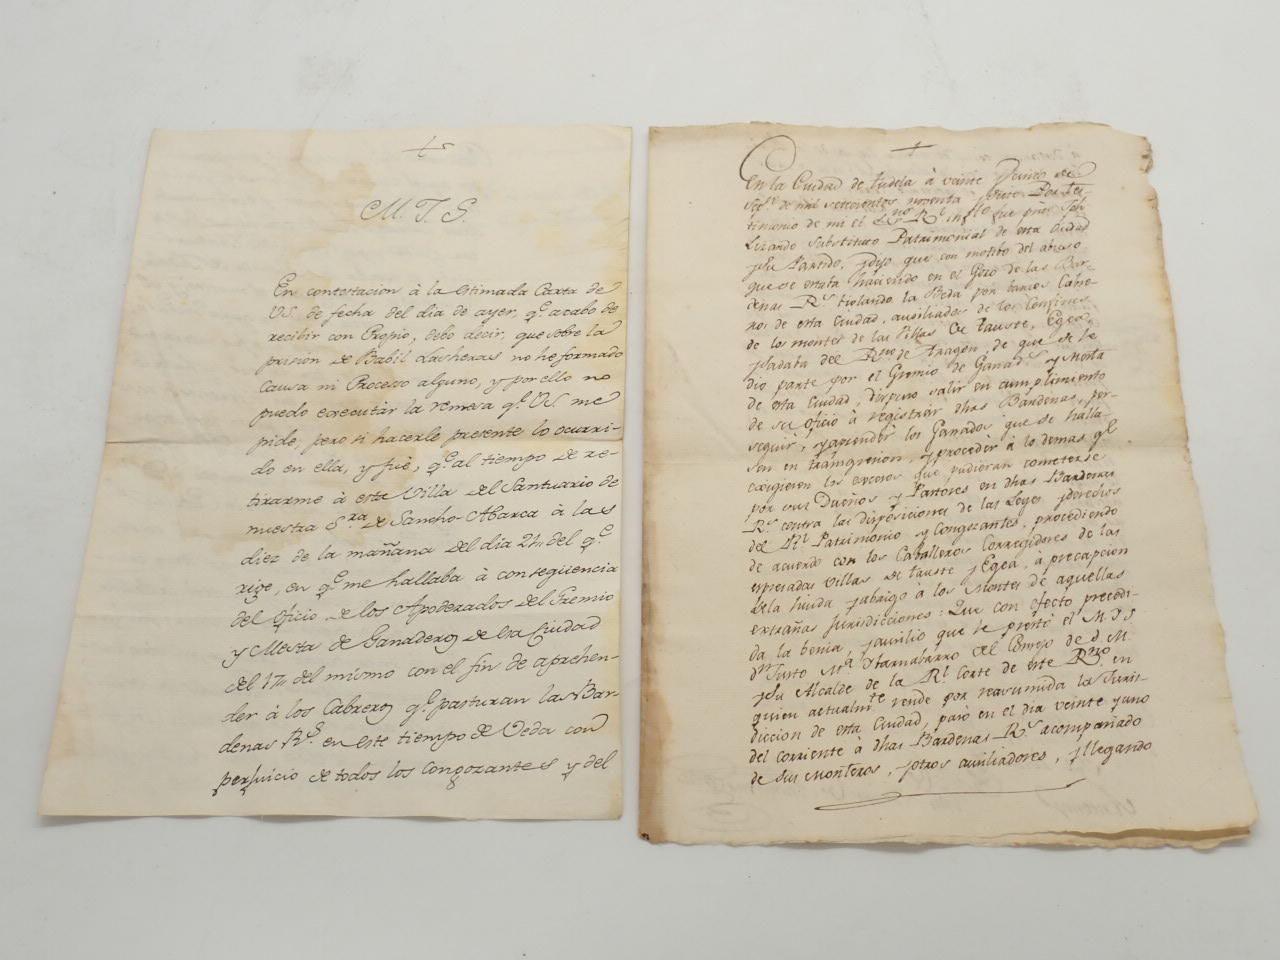 M. I. S.
En contestacion à la estimada Carta de
VS. de fecha del dia de ayer, q.e acabo de
recibir con Propio, debo decir, que sobre la
prision de Babil Lasheras no he formado
causa ni Proceso alguno, y por ello no
puedo executar la remesa q.e VS. me
pide, pero si hacerle presente lo ocurri-
do en ella, y fue, q.e al tiempo de re-
tirarme à esta Villa del Santuario de
nuestra Sra. de Sancho-Abarca à las
diez de la mañana del dia 24,, del q.e
rige, en q.e me hallaba à conseqüencia
del Oficio de los Apoderados del Gremio
y Mesta de Ganaderos de esa Ciudad
del 17,, del mismo con el fin de aprehen-
der à los Cabreros q.e pasturan las Bar-
denas R.s en este tiempo de Veda con
perjuicio de todos los congozantes y del
En la Ciudad de Tudela à veinte y cinco de
Sep.e de mil setecientos noventa y Por tes-
timonio de mi el Esno. Rl. que
Substituto Patrimonial de esta Ciudad
y su Partido, y dijo que con motibo del abuso
que se està haciendo en el Goze de las Bar-
denas R.s violando la Beda por barios Cabre-
ros de esta Ciudad, auxiliados de los confines
de los montes de las Villas de Tauste, Egea,
y Sadaba del Rno. de Aragon, de que se le
dio parte por el Gremio de Ganad.s y Mesta
de esta Ciudad, dispuso salir en cumplimiento
de su oficio à registrar dhas Bardenas, per-
seguir, y aprender los Ganados que se halla-
sen en transgresion, y proceder à lo demas q.e
exigiesen los excesos que pudieran cometerse
por sus Dueños y Pastores en dhas Bardenas
R.s contra las disposiciones de las Leyes y derechos
del Rl. Patrimonio y Congozantes, procediendo
de acuerdo con los Caballeros Corregidores de las
expresadas Villas de Tauste y Egea, à precapcion
de la huida y abrigo à los Montes de aquellas
extrañas Jurisdicciones: Que con efecto precedi-
da la benia, y auxilio que le prestò el M. I. S.
Dn. Justo M.a Ibarnabarro del Consejo de S. M.
y su Alcalde de la Rl. Corte de este Rno. en
quien actualmte. rende por reasumida la Juris-
diccion de esta Ciudad, pasò en el dia veinte y uno
del corriente à dhas Bardenas R.s acompañado
de sus Monteros, y otros auxiliadores, y llegando